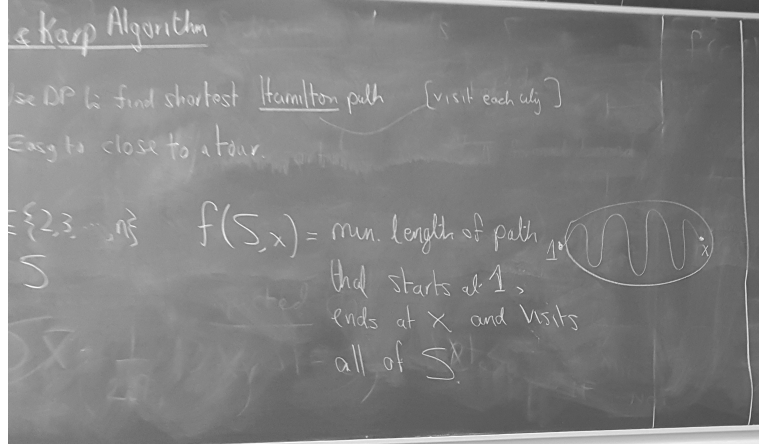 & Karp Algorithm
se DP to find shortest Hamilton path [visit each city]
Easy to close to a tour.
⊆ {2,3,...,n} f(S,x) = min. length of path 1 x
S that starts at 1,
ends at x and visits
all of S.